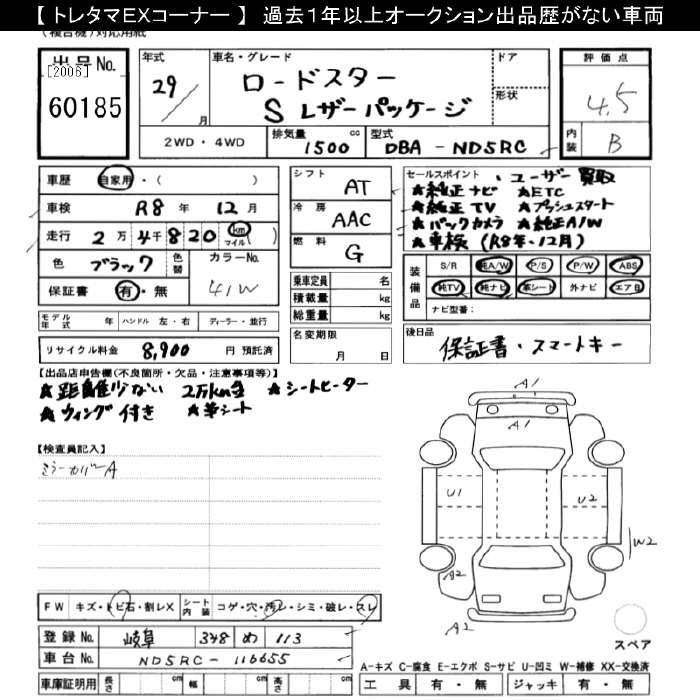 【 トレタマEXコーナー 】 過去1年以上オークション出品歴がない車両
(複合機)対応用紙
出品No.
[2006]
60185
年式
29/
月
車名・グレード
ロードスター
S レザーパッケージ
ドア
形状
評価点
4.5
内装 B
2WD・4WD 排気量 1500 cc 型式 DBA - ND5RC
車歴 自家用・( )
車検 R8年 12月
走行 2万 4千 820 km マイル( )
色 ブラック 色替 カラーNo.
保証書 有・無 41W
モデル年式 年 ハンドル 左・右 ディーラー・並行
リサイクル料金 8,900 円 預託済
シフト AT
冷房 AAC
燃料 G
乗車定員 名
積載量 kg
総重量 kg
名変期限
月 日
セールスポイント ・ユーザー買取
★純正ナビ ★ETC
★純正TV ★プッシュスタート
★バックカメラ ★純正A/W
★車検 (R8年・12月)
装備品
S/R 純A/W P/S P/W ABS
純TV 純ナビ 革シート 外ナビ エアB
ナビ型番:
後日品
保証書・スマートキー
【出品店申告欄(不良箇所・欠品・注意事項等)】
★距離少ない 2万km台 ★シートヒーター
★ウィング付き ★革シート
【検査員記入】
ミラーカバーA
A1
A1
U1
U2
W2
A2
A2
スペア
FW キズ・トビ石・割レX シート内装 コゲ・穴・汚レ・シミ・破レ・スレ
登録No. 岐阜 348 め 113
車台No. ND5RC-116655
車庫証明用 長さ cm 幅 cm 高さ cm
A-キズ C-腐食 E-エクボ S-サビ U-凹ミ W-補修 XX-交換済
工具 有・無 ジャッキ 有・無